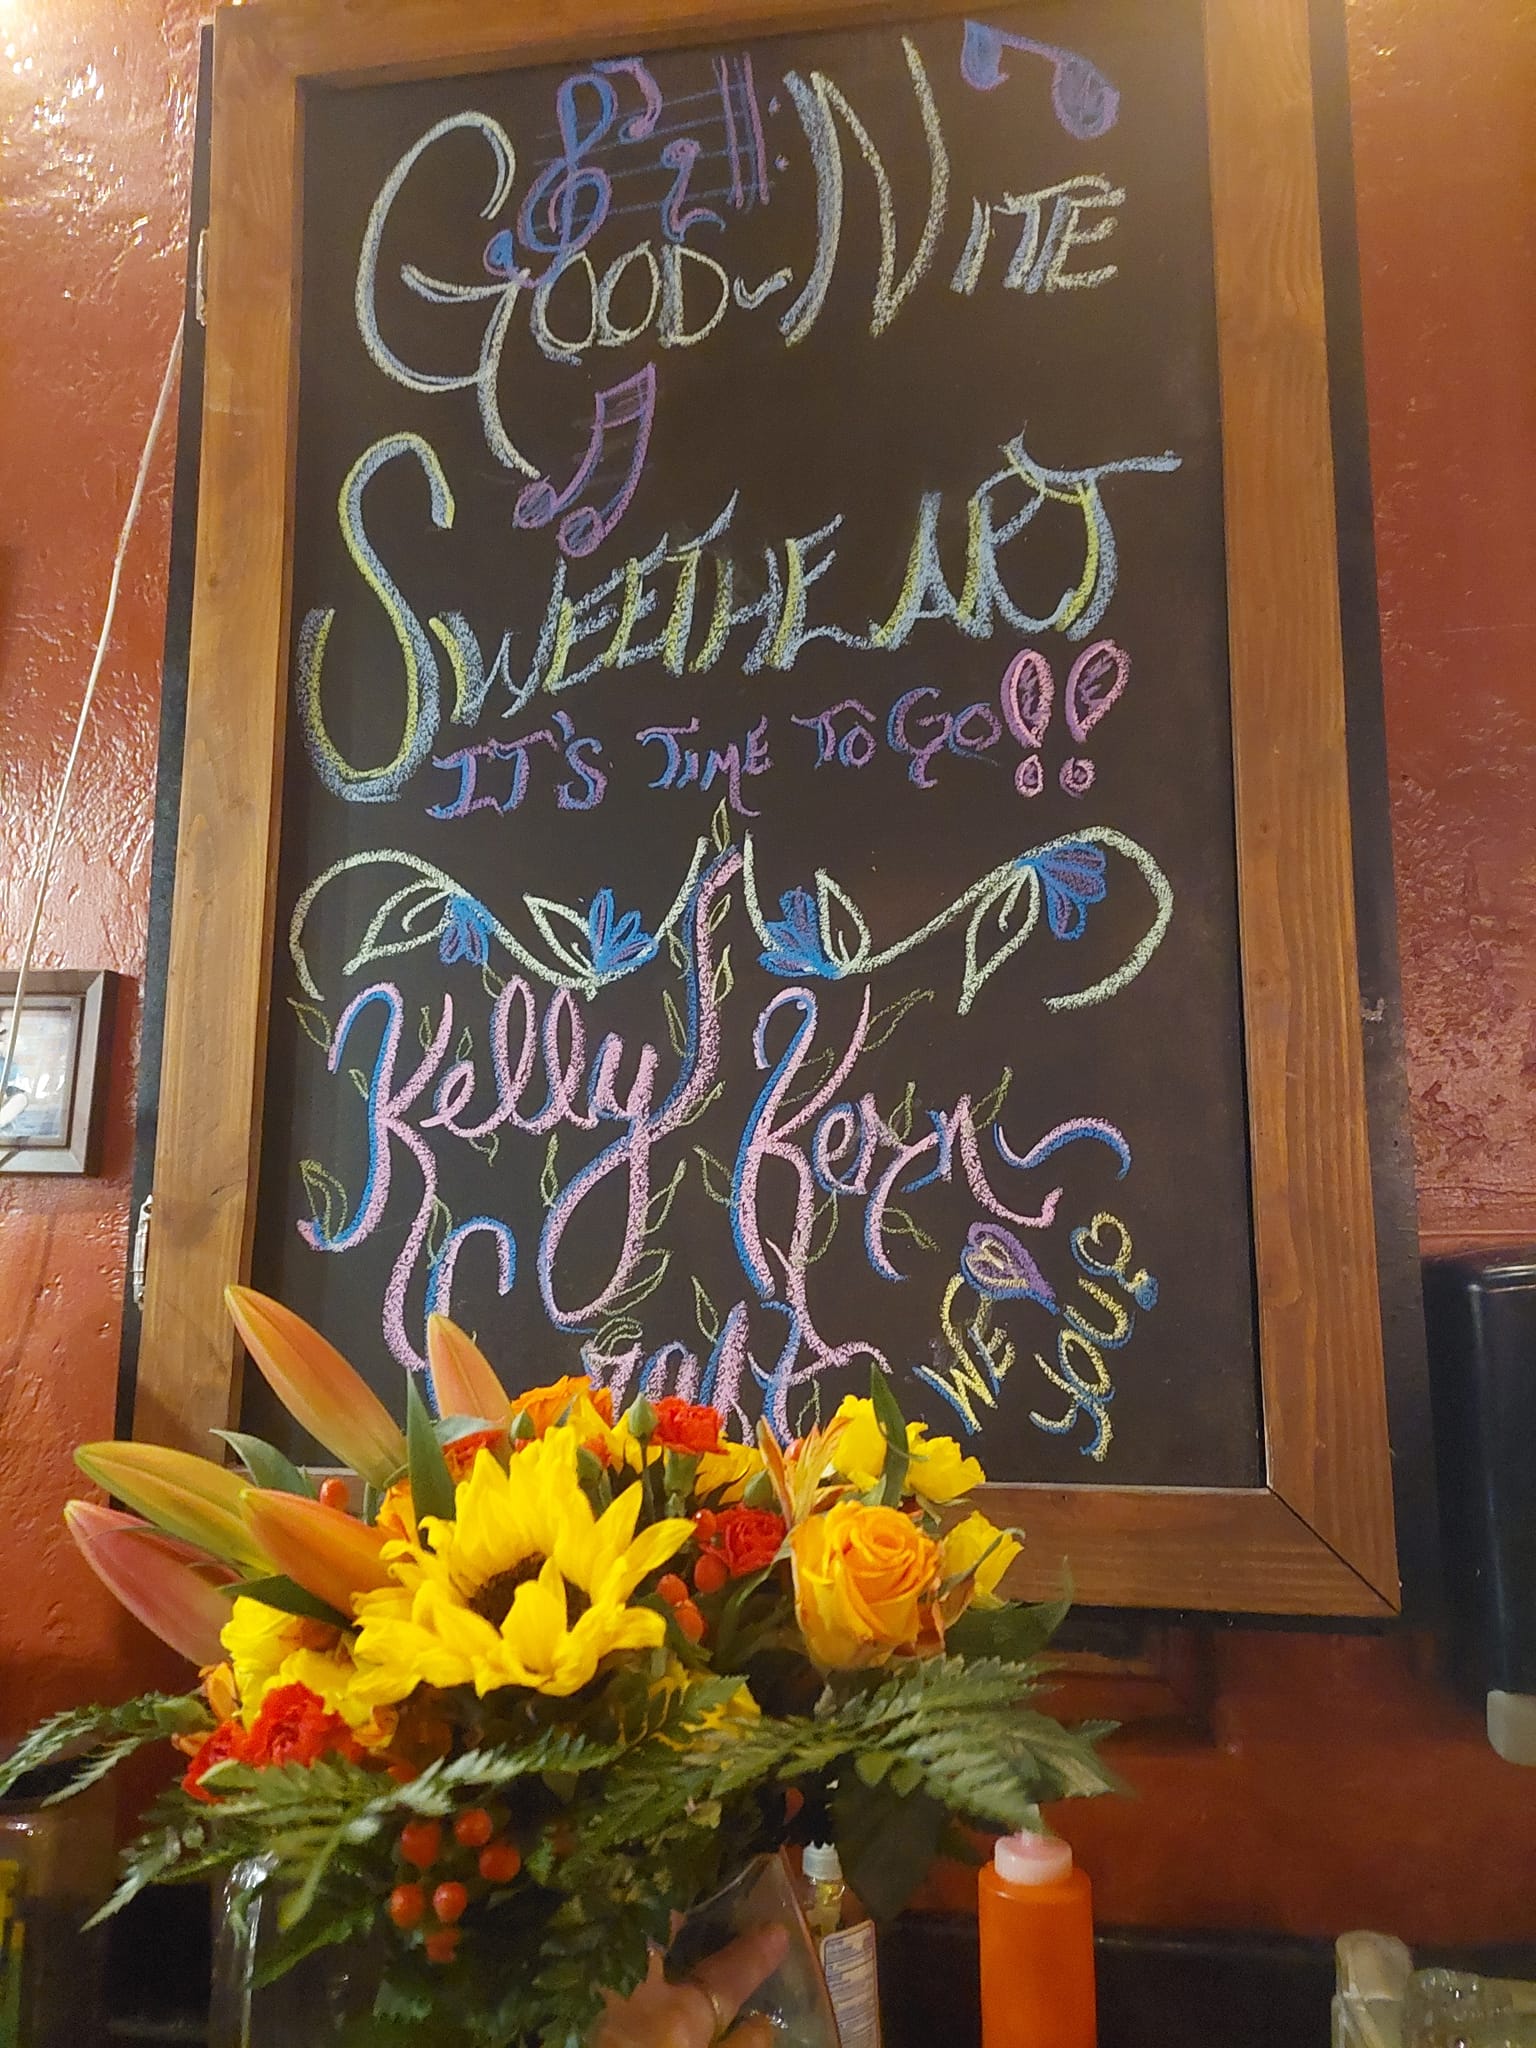 GOOD~NITE
SWEETHEART
IT'S TIME TO GO!!
Kelly Kern
WE
YOU